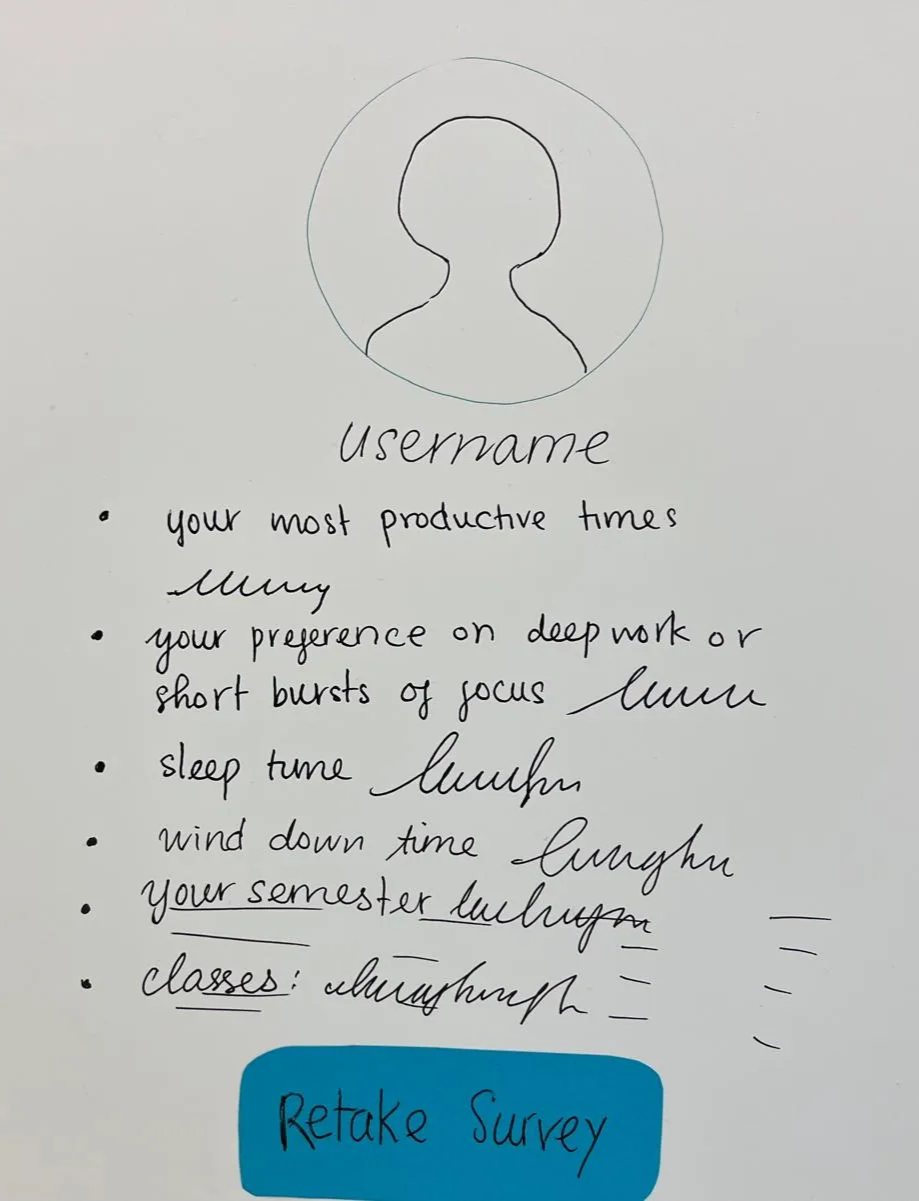 username
• your most productive times
• your preference on deep work or
short bursts of focus
• sleep time
• wind down time
• your semester
• classes:
Retake Survey